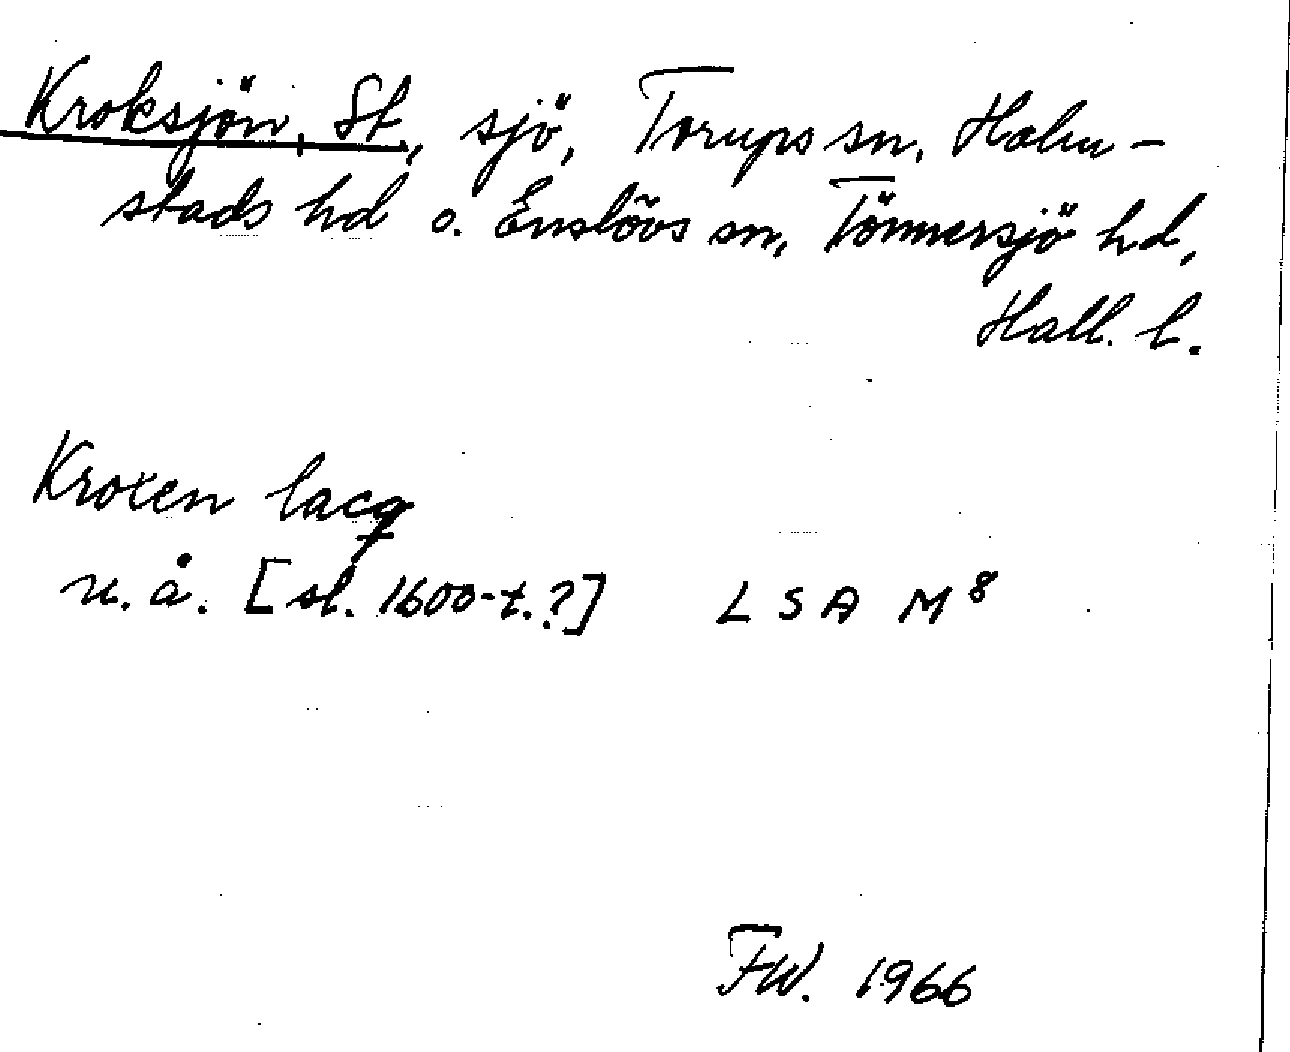 Kroksjön, St., sjö, Torups sn, Halm-
stads hd o. Enslövs sn, Tönnersjö hd,
Hall. l.
Kroxen lacq
u.å. [sl. 1600-t.?] LSA M 8
FW. 1966